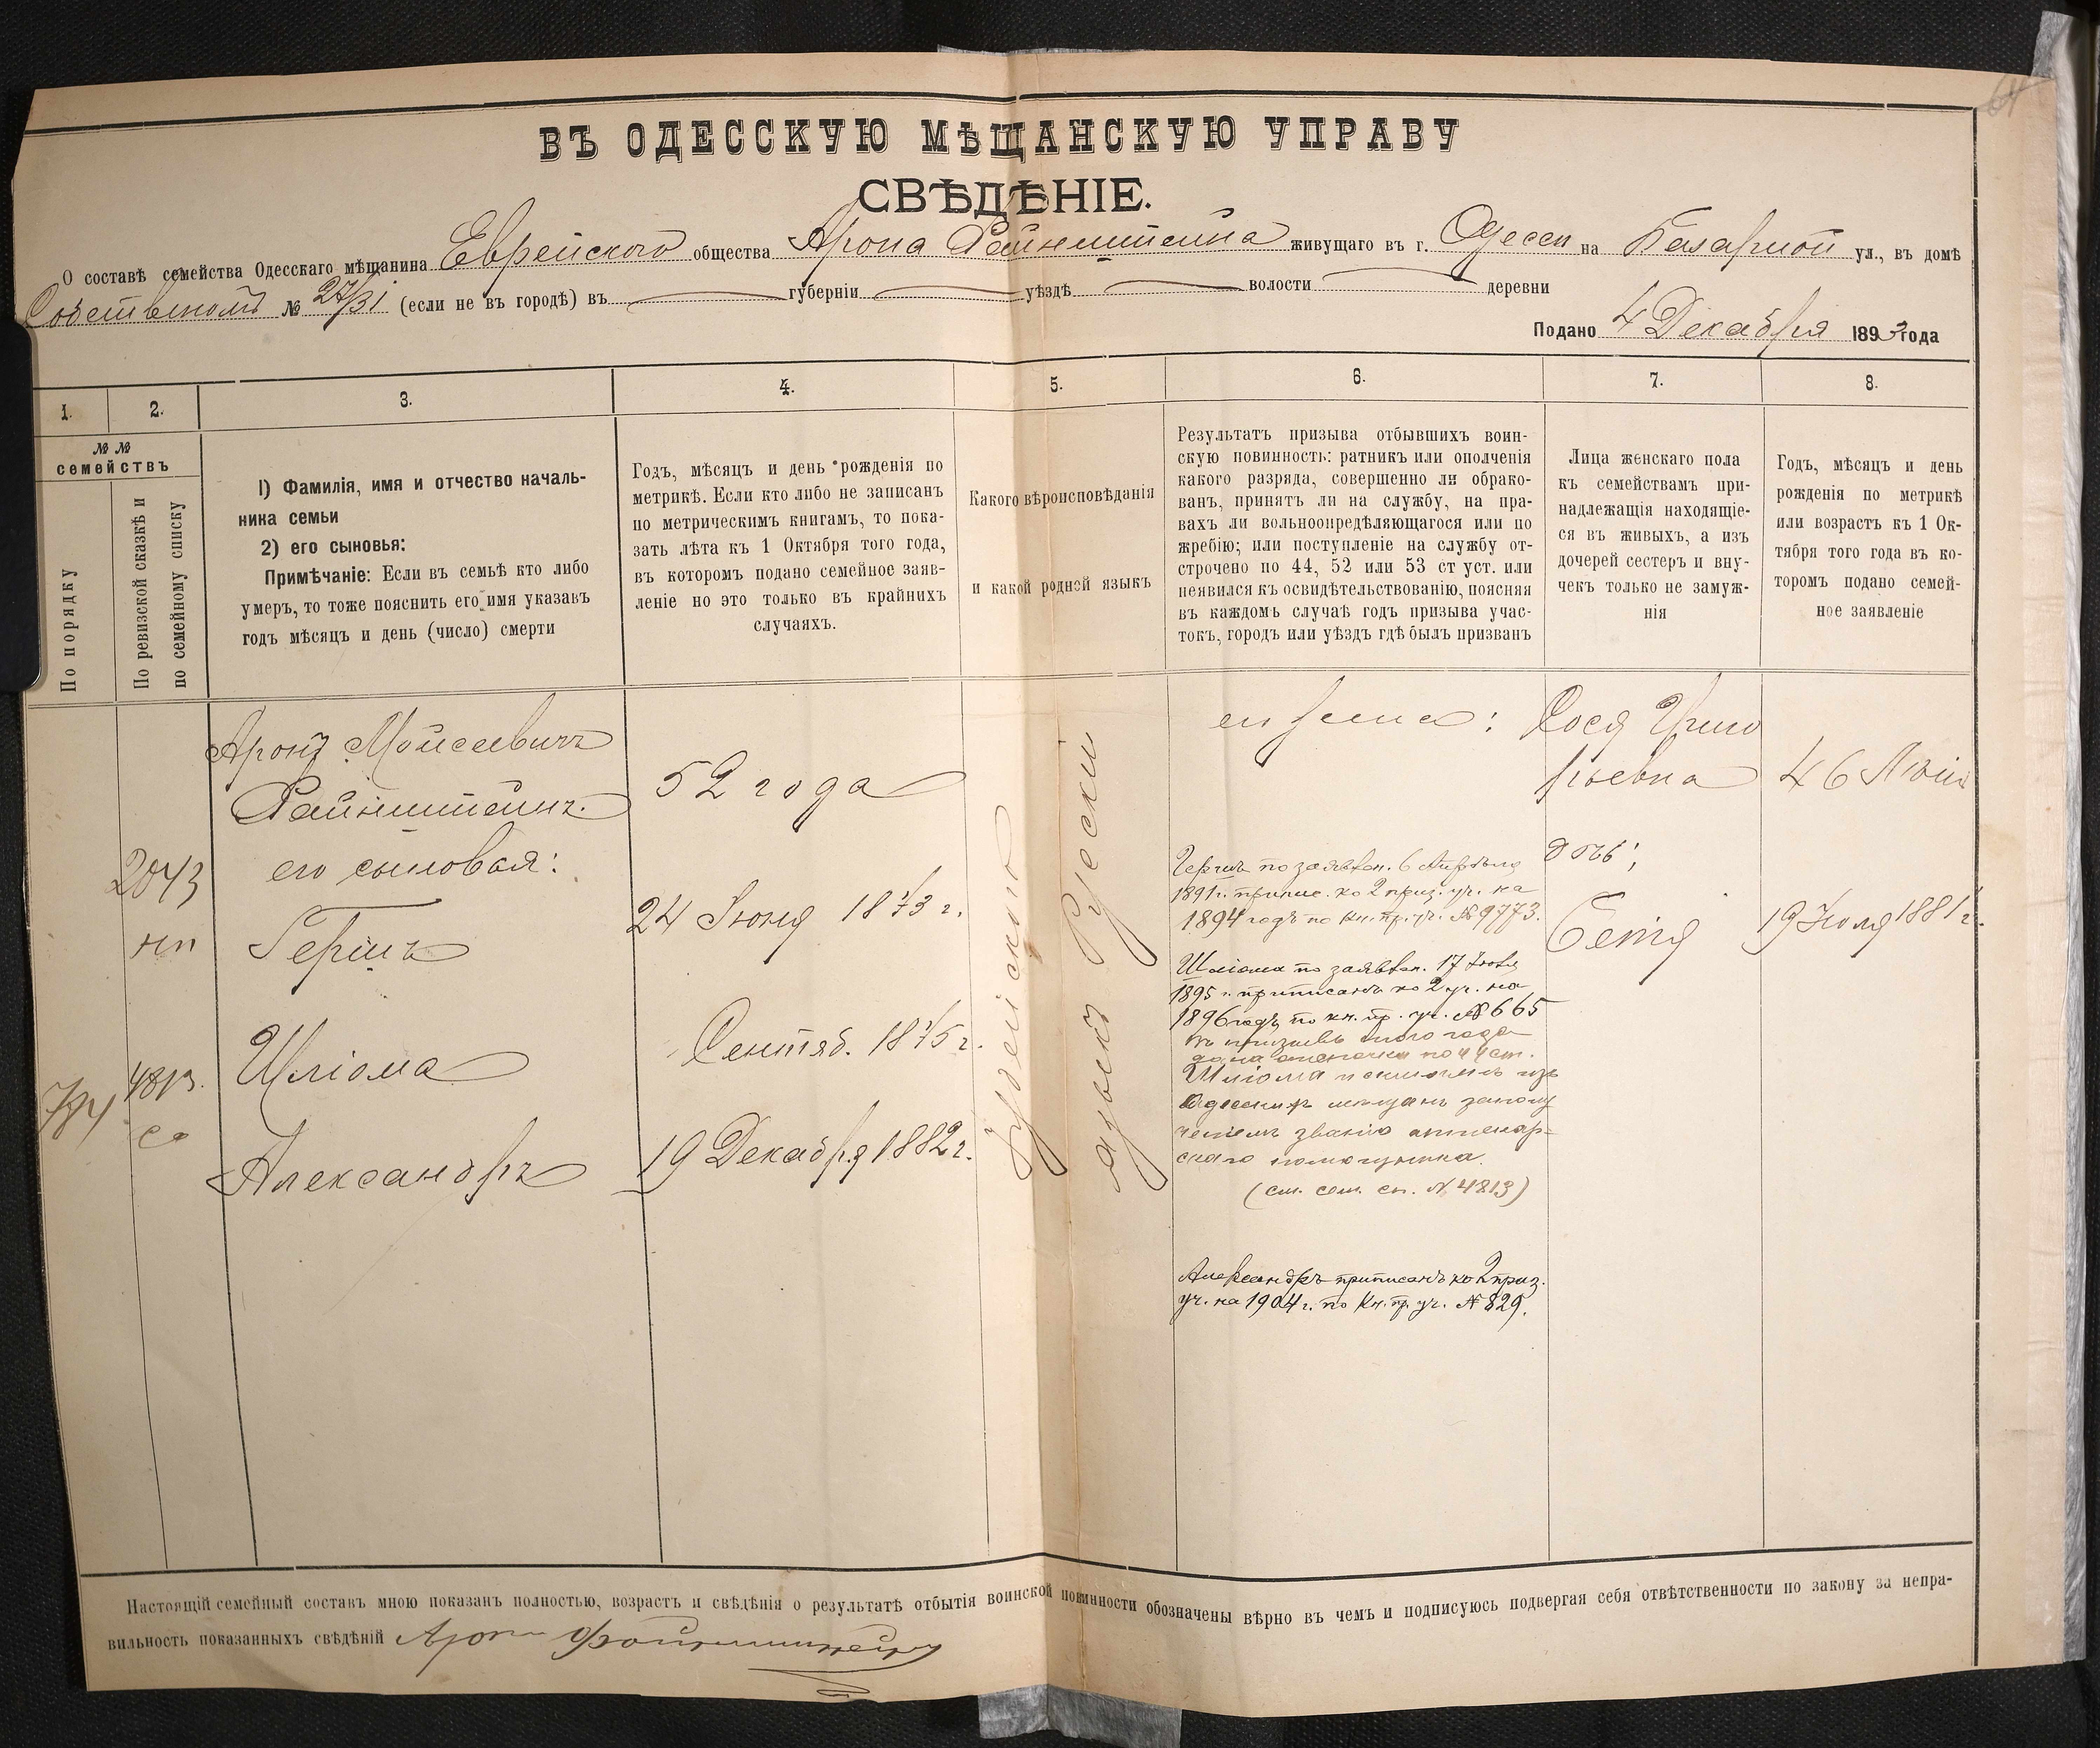 64
ВЪ ОДЕССКУЮ МѢЩАНСКУЮ УПРАВУ
СВѢДѢНІЕ.
О составѣ семейства Одесскаго мѣщанина Еврейского общества Арона Файнштейна живущаго въ г. Одессѣ на Базарной ул., въ домѣ
Собственномъ № 27/31 (если не въ городѣ) въ губерніи уѣздѣ волости деревни
Подано 4 Декабря 1893 года
1.
2.
3.
4.
5.
6.
7.
8.
№ №
семействъ
По порядку
По ревизской сказкѣ и
по семейному списку
1) Фамилія, имя и отчество началь-
ника семьи
2) его сыновья:
Примѣчаніе: Если въ семьѣ кто либо
умеръ, то тоже пояснить его имя указавъ
годъ мѣсяцъ и день (число) смерти
Годъ, мѣсяцъ и день рожденія по
метрикѣ. Если кто либо не записанъ
по метрическимъ книгамъ, то пока-
зать лѣта къ 1 Октября того года,
въ которомъ подано семейное заяв-
леніе но это только въ крайнихъ
случаяхъ.
Какого вѣроисповѣданія
и какой родной языкъ
Результатъ призыва отбывшихъ воин-
скую повинность: ратникъ или ополченія
какого разряда, совершенно ли обрако-
ванъ, принятъ ли на службу, на пра-
вахъ ли вольноопредѣляющагося или по
жребію; или поступленіе на службу от-
строчено по 44, 52 или 53 ст уст. или
неявился къ освидѣтельствованію, поясняя
въ каждомъ случаѣ годъ призыва учас-
токъ, городъ или уѣздъ гдѣ былъ призванъ
Лица женскаго пола
къ семействамъ при-
надлежащія находящіе-
ся въ живыхъ, а изъ
дочерей сестеръ и вну-
чекъ только не замуж-
нія
Годъ, мѣсяцъ и день
рожденія по метрикѣ
или возрастъ къ 1 Ок-
тября того года въ ко-
торомъ подано семей-
ное заявленіе
2043
нп
4813
794
Аронъ Мойсеевичъ
Файнштейнъ.
его сыновья:
Гершъ
Шліома
Александръ
52 года
24 Іюня 1873 г.
Сентяб. 1875 г.
19 Декабря 1882 г.
Іудейского
языкъ Русский
его жена:
Гершъ по заявлен. 6 Апрѣля
1891 г. припис. ко 2 приз. уч. на
1894 годъ по кн. пр. уч. № 9773.
Шліома по заявлен. 17
1895 г. приписанъ ко 2 уч. на
1896 годъ по кн. пр. уч. № 665
въ призывъ года
по 44 ст.
Шліома исключенъ изъ
Одесскихъ мѣщанъ за полу
ченіемъ званія аптекар-
скаго помощника.
(см. сем. сп. № 4813)
Александръ приписанъ ко 2 приз.
уч. на 1904 г. по Кн. пр. уч. № 829.
Гось Григо
рьевна
дочь:
Бетя
46 Лѣтъ
19 Іюля 1881 г.
Настоящій семейный составъ мною показанъ полностью, возрастъ и свѣдѣнія о результатѣ отбытія воинской повинности обозначены вѣрно въ чемъ и подписуюсь подвергая себя отвѣтственности по закону за непра-
вильность показанныхъ свѣдѣній Арон Файнштейн